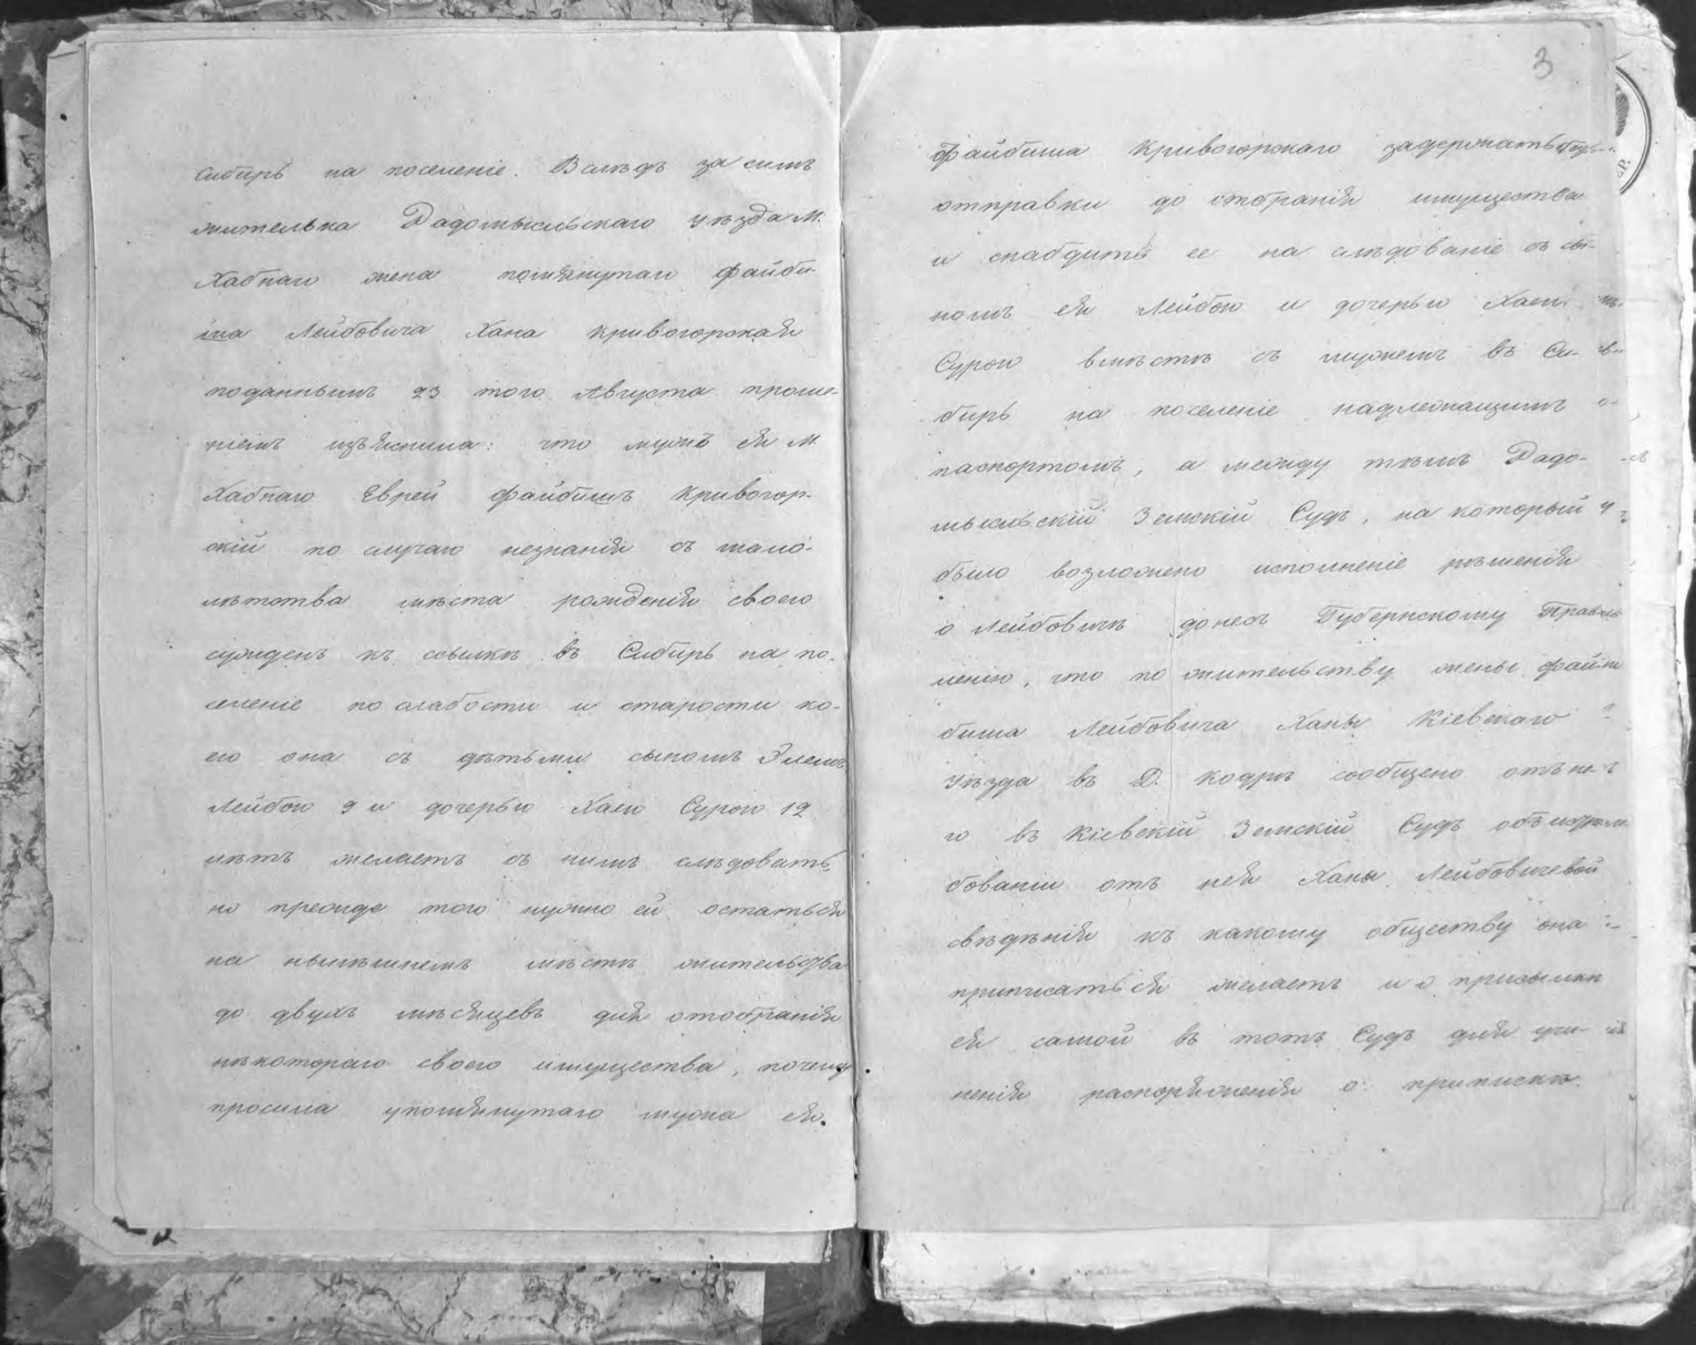 Сибирь на поселеніе. Вслѣдъ за симъ
жителька Радомысльскаго уѣзда М.
Хабнаго жена помянутаго Файби-
ша Лейбовича Хана Кривогорская
поданнымъ 23 того Августа проше-
ніемъ изъяснила: что мужъ ея М.
Хабнаго Еврей Файбишъ Кривогор-
скій по случаю незнанія съ мало-
лѣтства мѣста рожденія своего
сужденъ къ ссылкѣ въ Сибирь на по-
селеніе по слабости и старости ко-
его она съ дѣтьми сыномъ Элемъ
Лейбою 9 и дочерью Хаею Сурою 12
лѣтъ желаетъ съ нимъ слѣдовать,
но прежде того нужно ей остаться
на нынѣшнемъ мѣстѣ жительства
до двухъ мѣсяцевъ для отобранія
нѣкотораго своего имущества, почему
просила упомянутаго мужа ея.
3
Файбиша Кривогорскаго задержать
отправки до отобранія имущества
и снабдить ее на слѣдованіе съ сы-
номъ ея Лейбою и дочерью Хаею
Сурою вмѣстѣ съ мужемъ въ Си-
бирь на поселеніе надлежащимъ
паспортомъ, а между тѣмъ Радо-
мысльскій Земскій Судъ, на который
было возложено исполненіе рѣшенія
о Лейбовичѣ донесъ Губернскому Правле
ленію, что по жительству жены Фай-
биша Лейбовича Ханы Кіевскаго
Уѣзда въ Д. Кодрѣ сообщено отъ не-
го въ Кіевскій Земскій Судъ объ истре-
бованіи отъ нея Ханы Лейбовичевой
свѣдѣнія къ какому обществу она
приписаться желаетъ и о присылки
ея самой въ тотъ Судъ для учи-
ненія распоряженія о припискѣ.